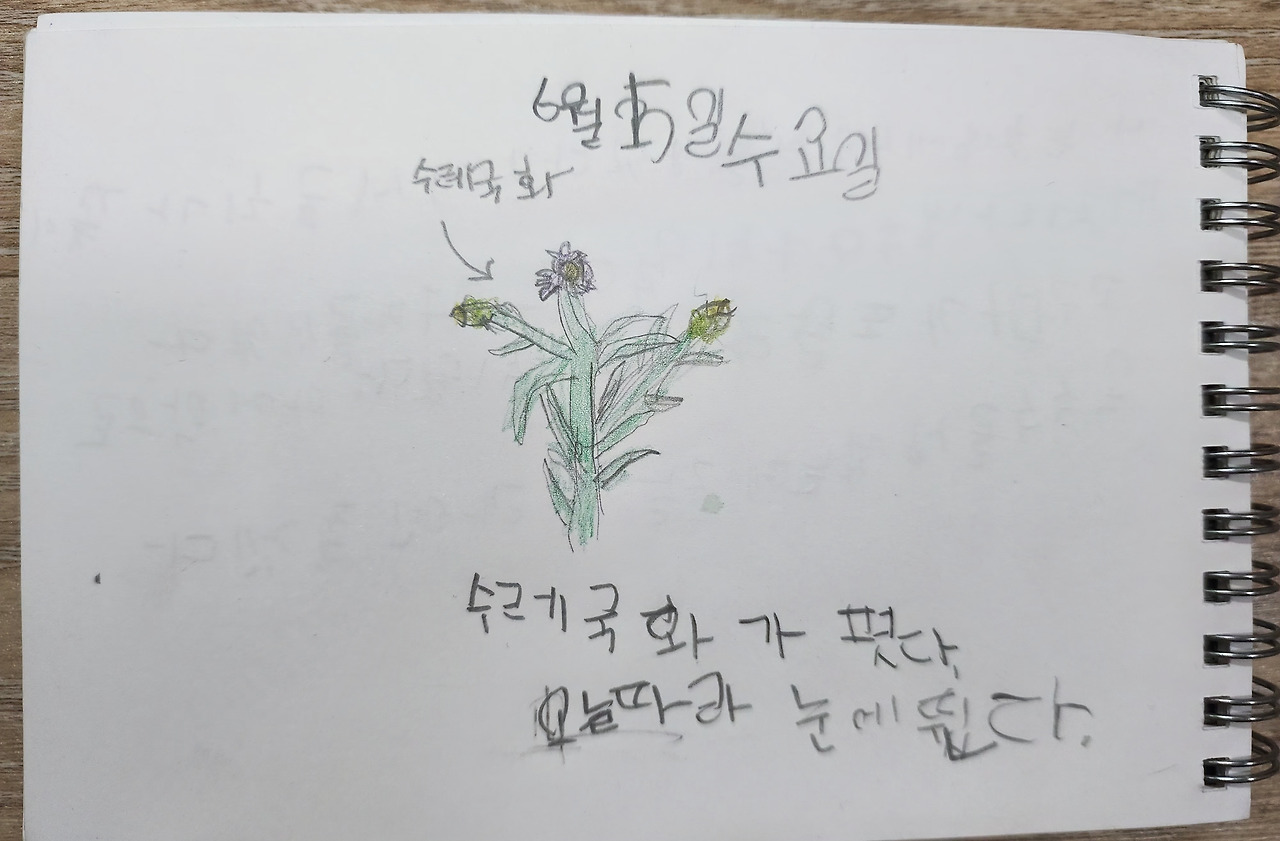 6월 15일 수요일
수레국화
수레국화가 폈다.
오늘따라 눈에 띈다.